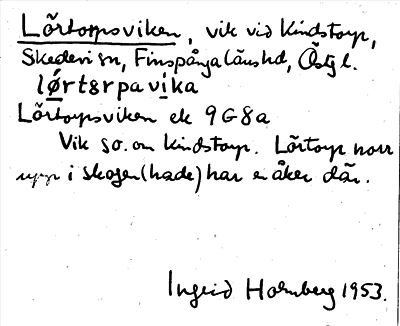 Lõrtorpsviken, vik vid Kindstorp,
Skedevi sn, Finspånga länshd, Östg l.
lǿrtɛrpavíka
Lõrtorpsviken ek 9G8a
Vik so. om Kindstorp. Lõrtorp norr
upp i skogen (hade) har ei åker där.
Ingrid Holmberg 1953.